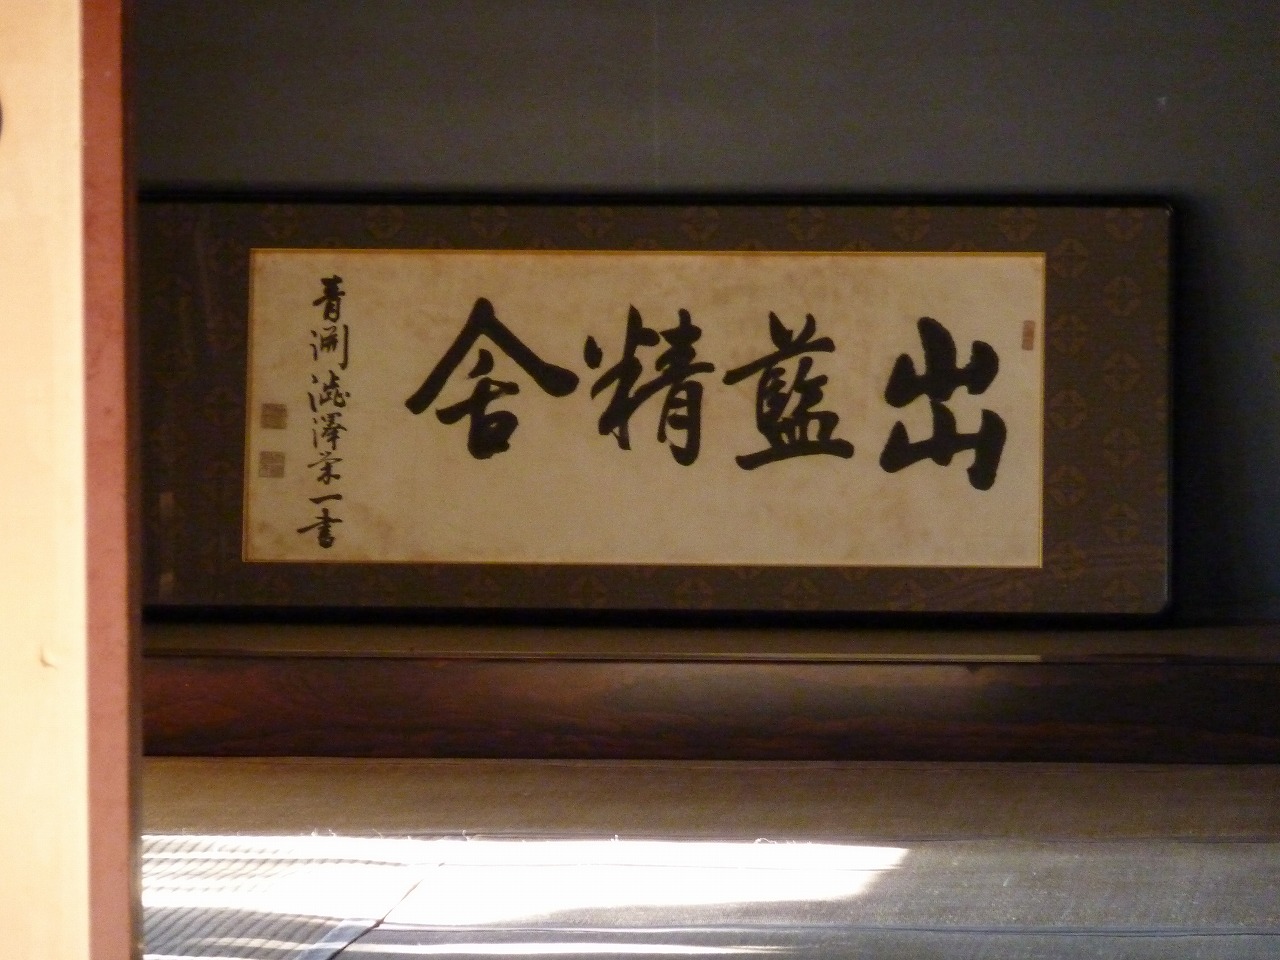 出藍精舎
青淵澁澤栄一書